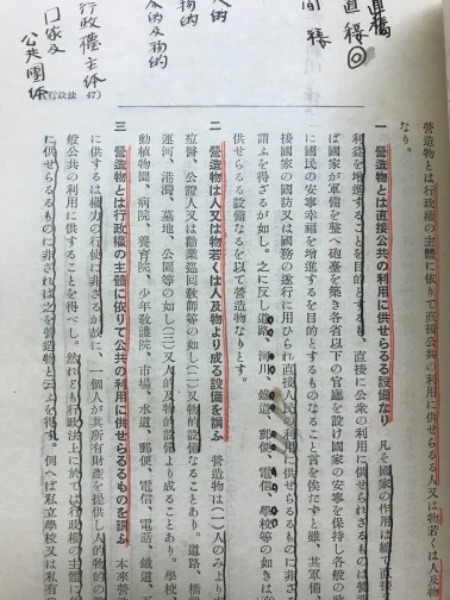 直接◎
間接
人的
物的
人的及物的
行政權主体
国家及
公共團体
(行政法 47)
營造物とは行政權の主體に依りて直接公共の利用に供せらるる人又は物若くは人及物
なり。
一 營造物とは直接公共の利用に供せらるる設備なり 凡そ國家の作用は總て直接
利益を增進することを目的とするも、直接に公衆の利用に供せられざるものは營造
ば國家が軍備を整へ砲臺を築き各省以下の官廳を設け國家の安寧を保持し各般の政
に國民の安寧幸福を增進するを目的とするものなること言を俟たずと雖、其軍備、
接國家の國防又は國務の遂行に用ひられ直接人民の利用に供せらるるものに非ざ
謂ふを得ざるが如し。之に反し道路、河川、鐵道、郵便、電信、學校等の如きは直
供せらるる設備なるを以て營造物なりとす。
二 營造物は人又は物若くは人及物より成る設備を謂ふ 營造物は(一)人のみより
痘醫、公證人又は勸業巡囘敎師等の如し(二)又物的設備なることあり。道路、橋
運河、港灣、墓地、公園等の如し(三)又人的及物的設備より成ることあり。學校、
動植物園、病院、養育院、少年敎護院、市場、水道、郵便、電信、電話、鐵道、
三 營造物とは行政權の主體に依りて公共の利用に供せらるるものを謂ふ 本來營
に供するは權力の行使に非ざるが故に、一個人が其所有財產を提供し人的物的の
般公共の利用に供することを得べし。然れども行政法上に於ては行政權の主體に
に供せらるるものに非ざれば之を營造物と云ふを得ず。例へば私立學校又は私有の